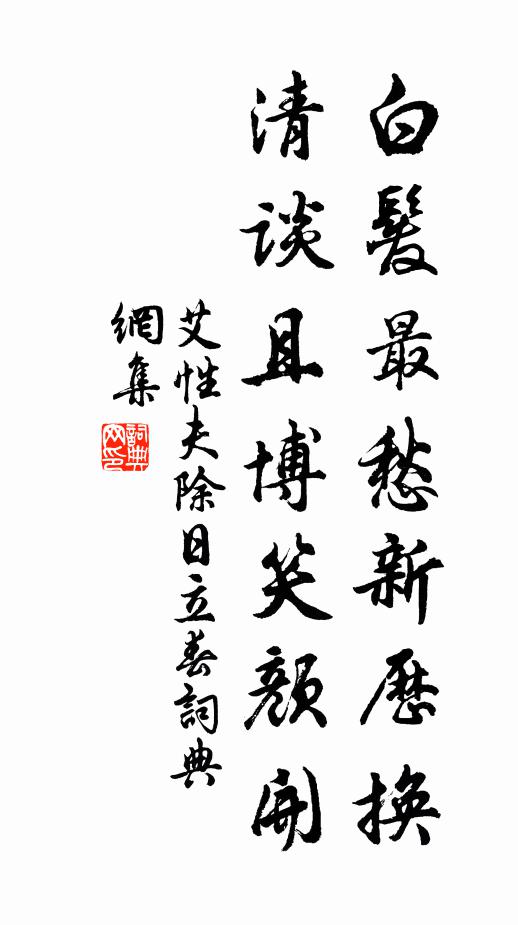 白髮最愁新歷換
清談且博笑顏開
艾性夫除日立春詞典
網集
詞典網印